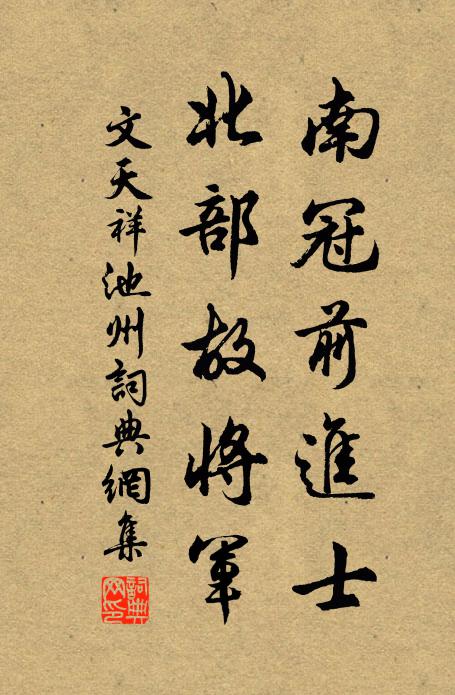 南冠前進士
北部故將軍
文天祥池州詞典網集
詞典網印